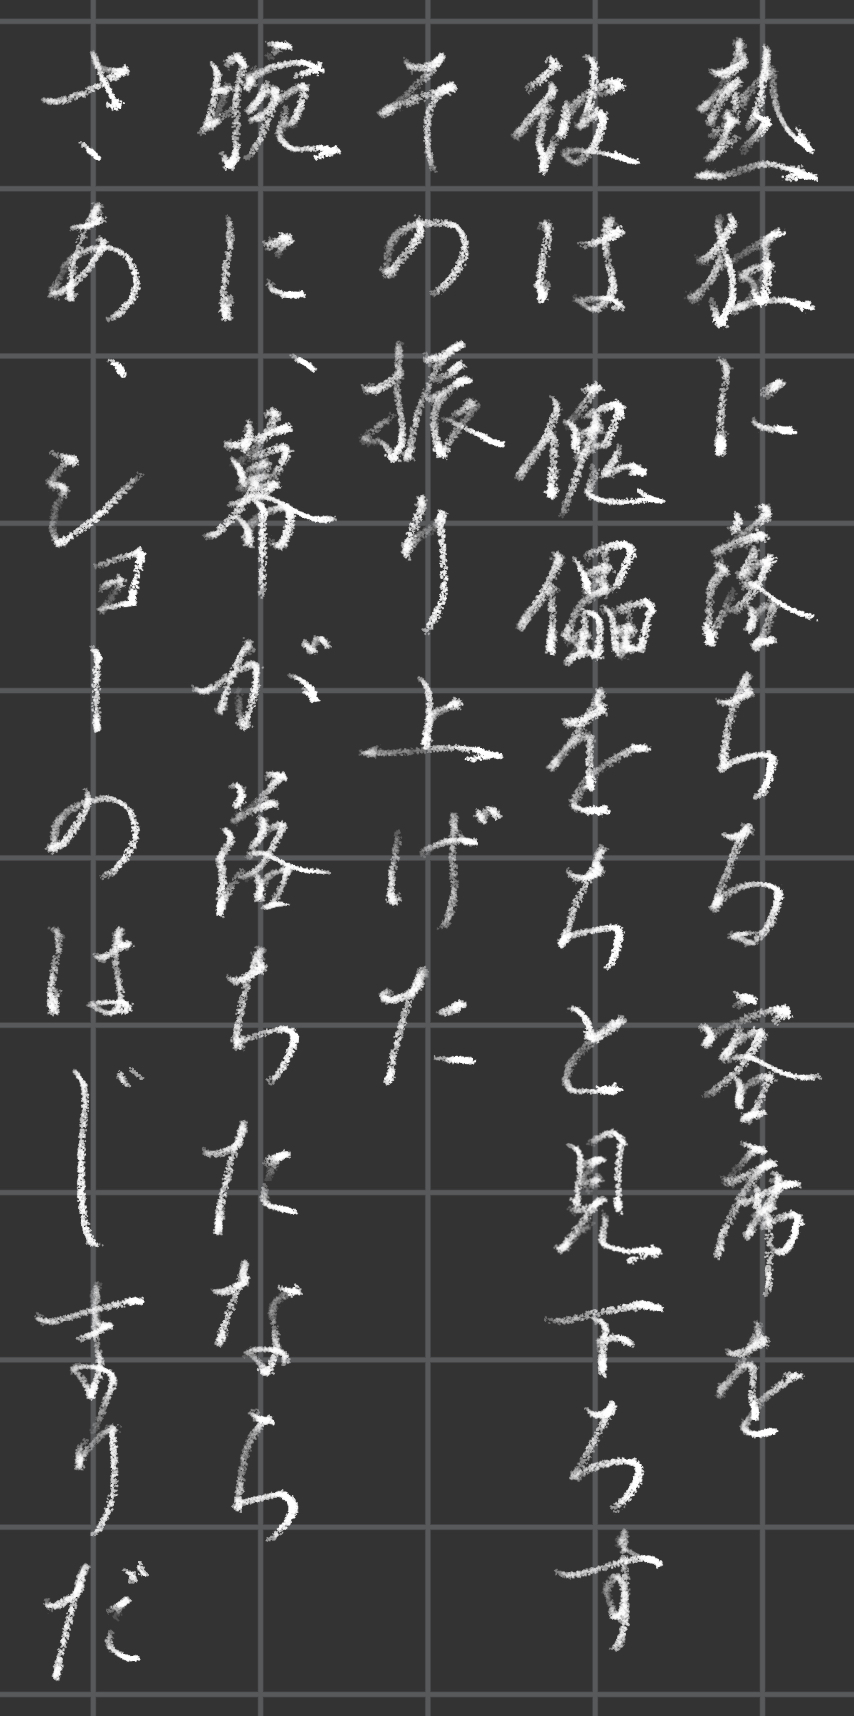 熱狂に落ちる客席を
彼は傀儡をちらと見下ろす
その振り上げた
腕に、幕が落ちたなら
さあ、ショーのはじまりだ